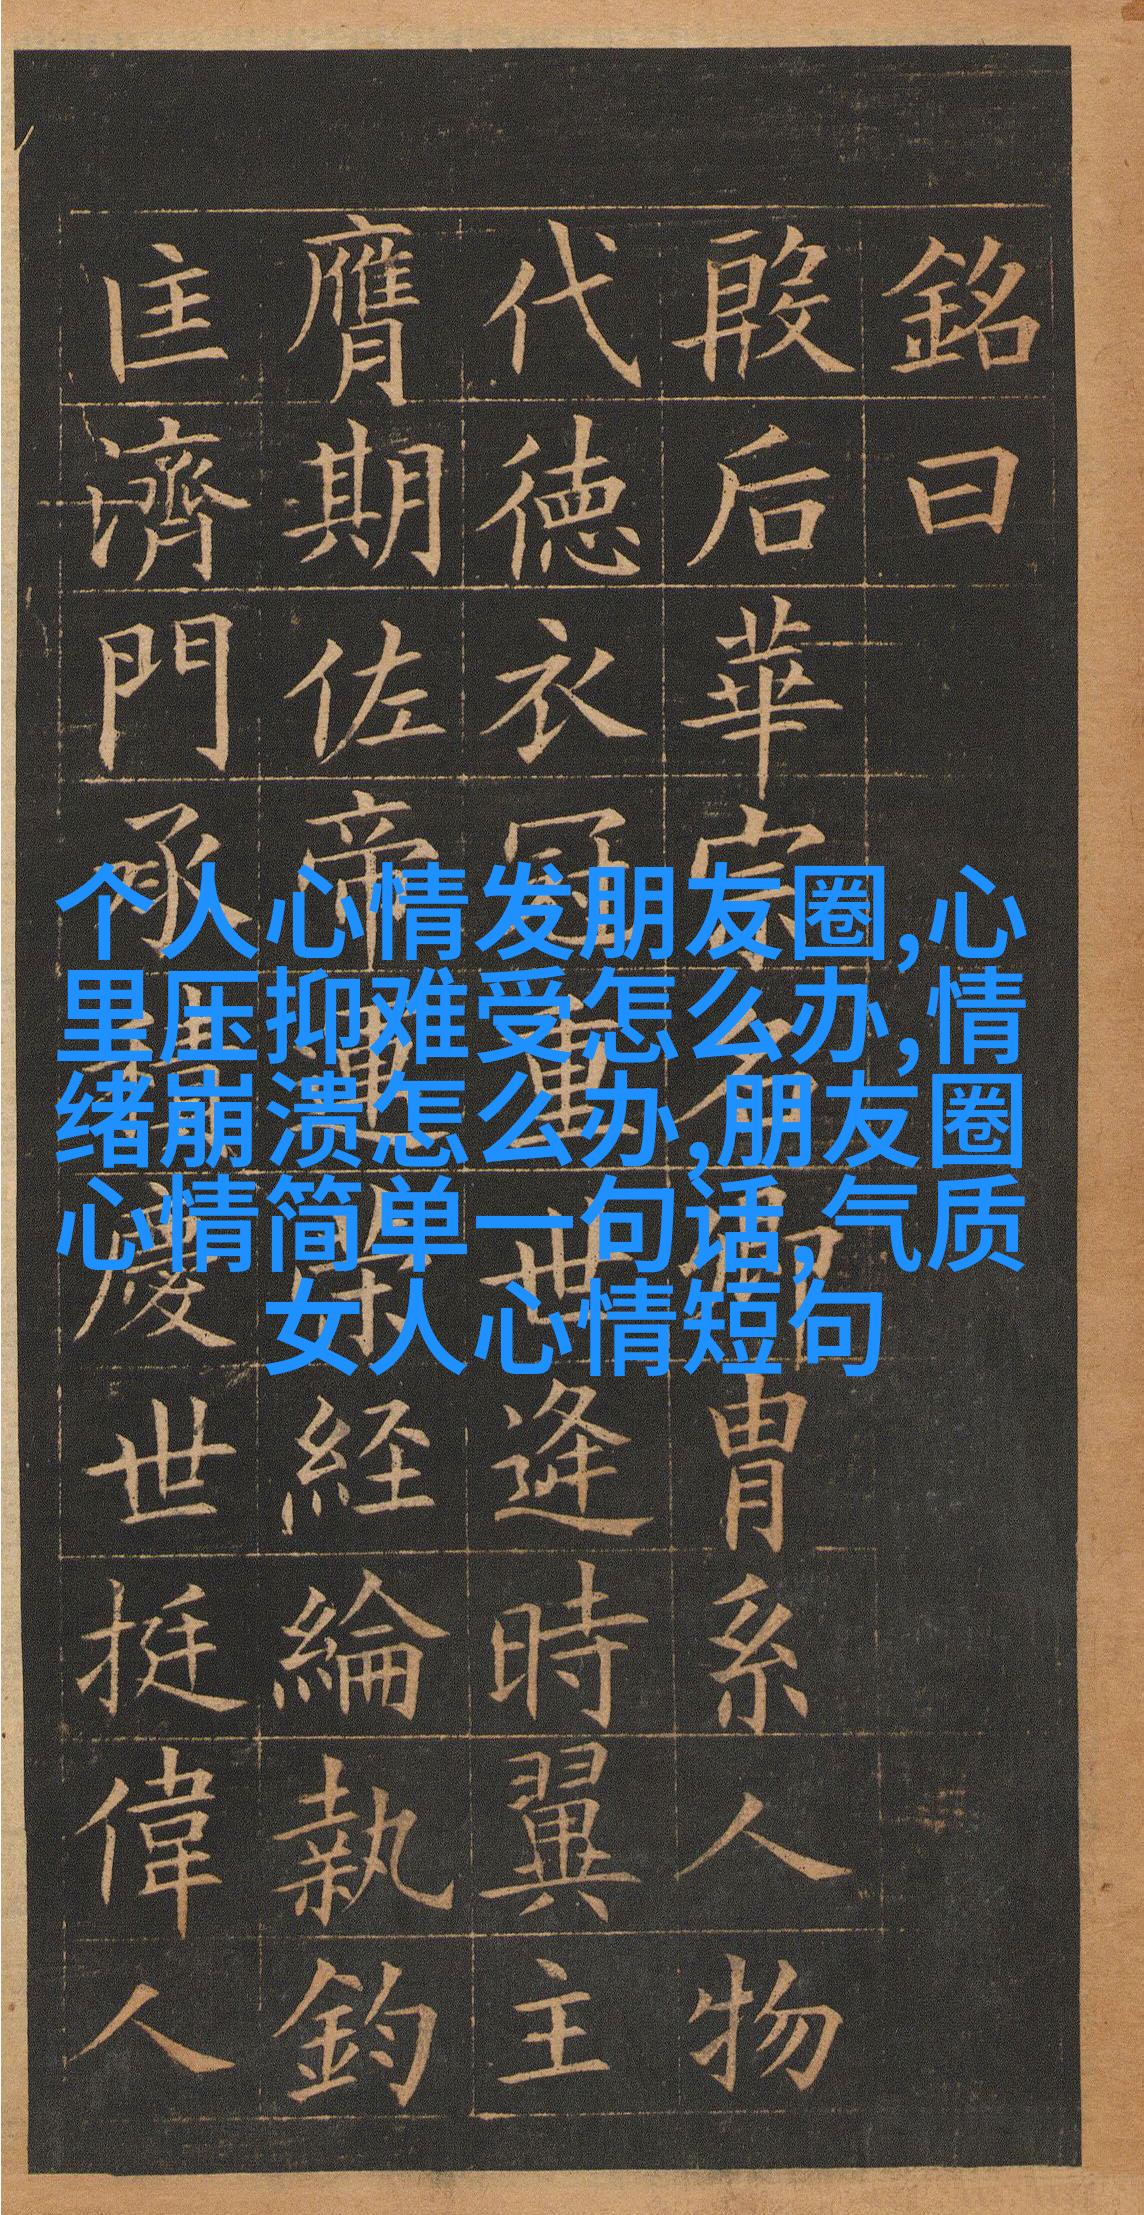 銘曰
殷后華宗名卿胄系人物
代徳衣冠重世逄時翼主
膺期佐帝運経綸執鈞
匡濟門承積慶世挺偉人
个人心情发朋友圈,心
里压抑难受怎么办,情
绪崩溃怎么办,朋友圈
心情简单一句话,气质
女人心情短句